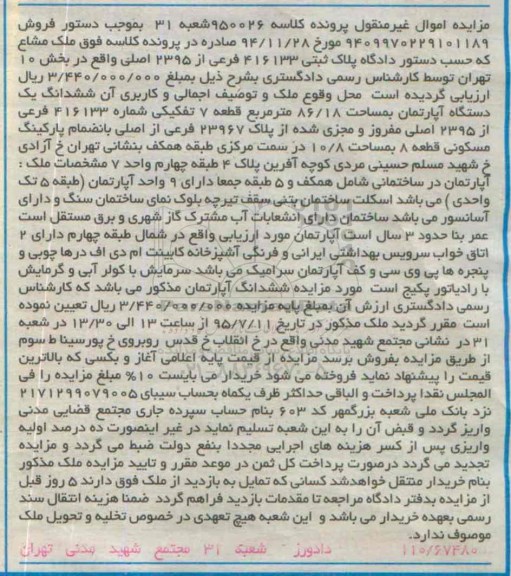 مزایده اموال غیرمنقول پرونده کلاسه ۹۵۰۰۲۶شعبه ۳۱ بموجب دستور فروش
۹۴۰۹۹۷۰۲۲۹۱۰۱۱۸۹ مورخ ۹۴/۱۱/۲۸ صادره در پرونده کلاسه فوق ملک مشاع
که حسب دستور دادگاه پلاک ثبتی ۴۱۶۱۳۳ فرعی از ۲۳۹۵ اصلی واقع در بخش ۱۰
تهران توسط کارشناس رسمی دادگستری بشرح ذیل بمبلغ ۳/۴۴۰/۰۰۰/۰۰۰ ریال
ارزیابی گردیده است محل وقوع ملک و توصیف اجمالی و کاربری آن ششدانگ یک
دستگاه آپارتمان بمساحت ۸۶/۱۸ مترمربع قطعه ۷ تفکیکی شماره ۴۱۶۱۳۳ فرعی
از ۲۳۹۵ اصلی مفروز و مجزی شده از پلاک ۲۳۹۶۷ فرعی از اصلی بانضمام پارکینگ
مسکونی قطعه ۸ بمساحت ۱۰/۸ در سمت مرکزی طبقه همکف بنشانی تهران خ آزادی
خ شهید مسلم حسینی مردی کوچه آفرین پلاک ۴ طبقه چهارم واحد ۷ مشخصات ملک :
آپارتمان در ساختمانی شامل همکف و ۵ طبقه جمعا دارای ۹ واحد آپارتمان (طبقه ۵ تک
واحدی ) می باشد اسکلت ساختمان بتنی سقف تیرچه بلوک نمای ساختمان سنگ و دارای
آسانسور می باشد ساختمان دارای انشعابات آب مشترک گاز شهری و برق مستقل است
عمر بنا حدود ۳ سال است آپارتمان مورد ارزیابی واقع در شمال طبقه چهارم دارای ۲
اتاق خواب سرویس بهداشتی ایرانی و فرنگی آشپزخانه کابینت ام دی اف درها چوبی و
پنجره ها پی وی سی و کف آپارتمان سرامیک می باشد سرمایش با کولر آبی و گرمایش
با رادیاتور پکیج است مورد مزایده ششدانگ آپارتمان مذکور می باشد که کارشناس
رسمی دادگستری ارزش آن بمبلغ پایه مزایده ۳/۴۴۰/۰۰۰/۰۰۰ ریال تعیین نموده
است مقرر گردید ملک مذکور در تاریخ ۹۵/۷/۱۱ از ساعت ۱۳ الی ۱۳/۳۰ در شعبه
۳۱ در نشانی مجتمع شهید مدنی واقع در خ انقلاب خ قدس روبروی خ پورسینا ط سوم
از طریق مزایده بفروش برسد مزایده از قیمت پایه اعلامی آغاز و بکسی که بالاترین
قیمت را پیشنهاد نماید فروخته می شود خریدار می بایست ۱۰% مبلغ مزایده را فی
المجلس نقدا پرداخت و الباقی حداکثر ظرف یکماه بحساب سیبای ۲۱۷۱۲۹۹۰۷۹۰۰۵
نزد بانک ملی شعبه بزرگمهر کد ۶۰۳ بنام حساب سپرده جاری مجتمع قضایی مدنی
واریز گردد و قبض آن را به این شعبه تسلیم نماید در غیر اینصورت ده درصد اولیه
واریزی پس از کسر هزینه های اجرایی مجددا بنفع دولت ضبط می گردد و مزایده
تجدید می گردد درصورت پرداخت کل ثمن در موعد مقرر و تایید مزایده ملک مذکور
بنام خریدار منتقل خواهدشد کسانی که تمایل به بازدید از ملک فوق دارند ۵ روز قبل
از مزایده بدفتر دادگاه مراجعه تا مقدمات بازدید فراهم گردد ضمنا هزینه انتقال سند
رسمی بعهده خریدار می باشد و این شعبه هیچ تعهدی در خصوص تخلیه و تحویل ملک
موصوف ندارد.
۱۱۰/۶۷۴۸۰ دادورز شعبه ۳۱ مجتمع شهید مدنی تهران